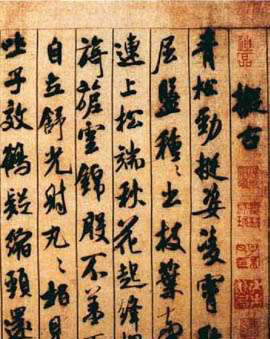 擬古
青松勁挺姿凌霄恥
屈盤種〻出枝葉牽
連上松端秋花起絳
旖旎雲錦殷不羞
自立舒光射丸〻柏見
吐子效鶴疑縮頸還